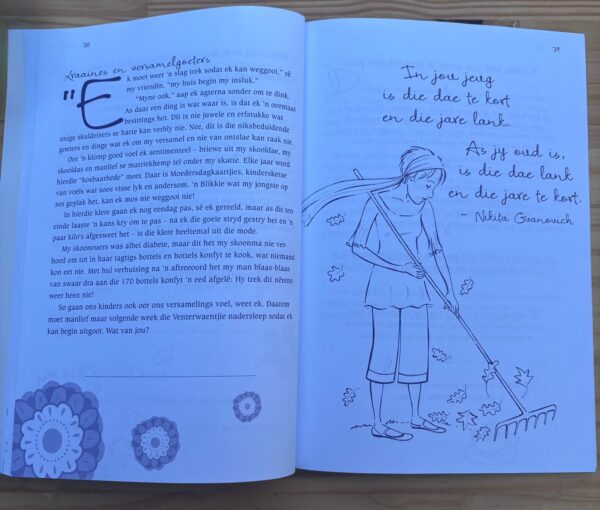 Kraaines en versamelgoeters
"E
k moet weer 'n slag trek sodat ek kan weggooi," sê
my vriendin, "my huis begin my insluk."
"Myne ook," aap ek agterna sonder om te dink.
As daar een ding is wat waar is, is dat ek 'n oormaat
besittings het. Dit is nie juwele en erfstukke wat
enige skuldeisers se harte kan verbly nie. Nee, dit is die niksbeduidende
goeters en dinge wat ek om my versamel en nie van ontslae kan raak nie.
Oor 'n klomp goed voel ek sentimenteel – briewe uit my skooldae, my
skooldas en manlief se matriekhemp tel onder my skatte. Elke jaar word
hierdie "kosbaarhede" meer. Daar is Moedersdagkaartjies, kindersketse
van voëls wat soos visse lyk en andersom. 'n Blikkie wat my jongste op
ses geplak het, kan ek mos nie weggooi nie!
In hierdie klere gaan ek nog eendag pas, sê ek gereeld, maar as dit ten
einde laaste 'n kans kry om te pas – na ek die goeie stryd gestry het en 'n
paar kilo's afgesweet het – is die klere heeltemal uit die mode.
My skoonouers was albei diabete, maar dit het my skoonma nie ver-
hoed om tot in haar tagtigs bottels en bottels konfyt te kook, wat niemand
kon eet nie. Met hul verhuising na 'n aftreeoord het my man blaas-blaas
van swaar dra aan die 170 bottels konfyt 'n eed afgelê: Hy trek dit nêrens
weer heen nie!
So gaan ons kinders ook oor ons versamelings voel, weet ek. Daarom
moet manlief maar volgende week die Venterwaentjie nadersleep sodat ek
kan begin uitgooi. Wat van jou?
39
In jou jeug
is die dae te kort
en die jare lank.
As jy oud is,
is die dae lank
en die jare te kort.
~ Nikita Gvanovich